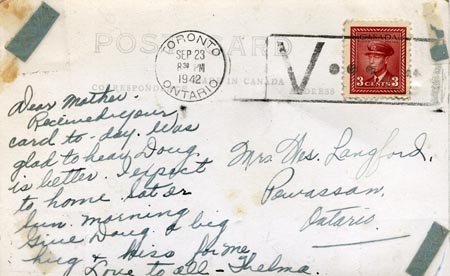 POST CARD
CANADA
TORONTO
SEP 23
PM
1942
ONTARIO
V
3 CENTS 3
CORRESPONDENCE
IN CANADA
ADDRESS
Dear Mother.
Received your
card to-day. Was
glad to hear Doug
is better. I expect
to home Sat or
Sun. morning
Give Doug a big
hug & kiss for me
Love to all - Thelma.
Mrs Wes. Langford,
Powassan,
Ontario.